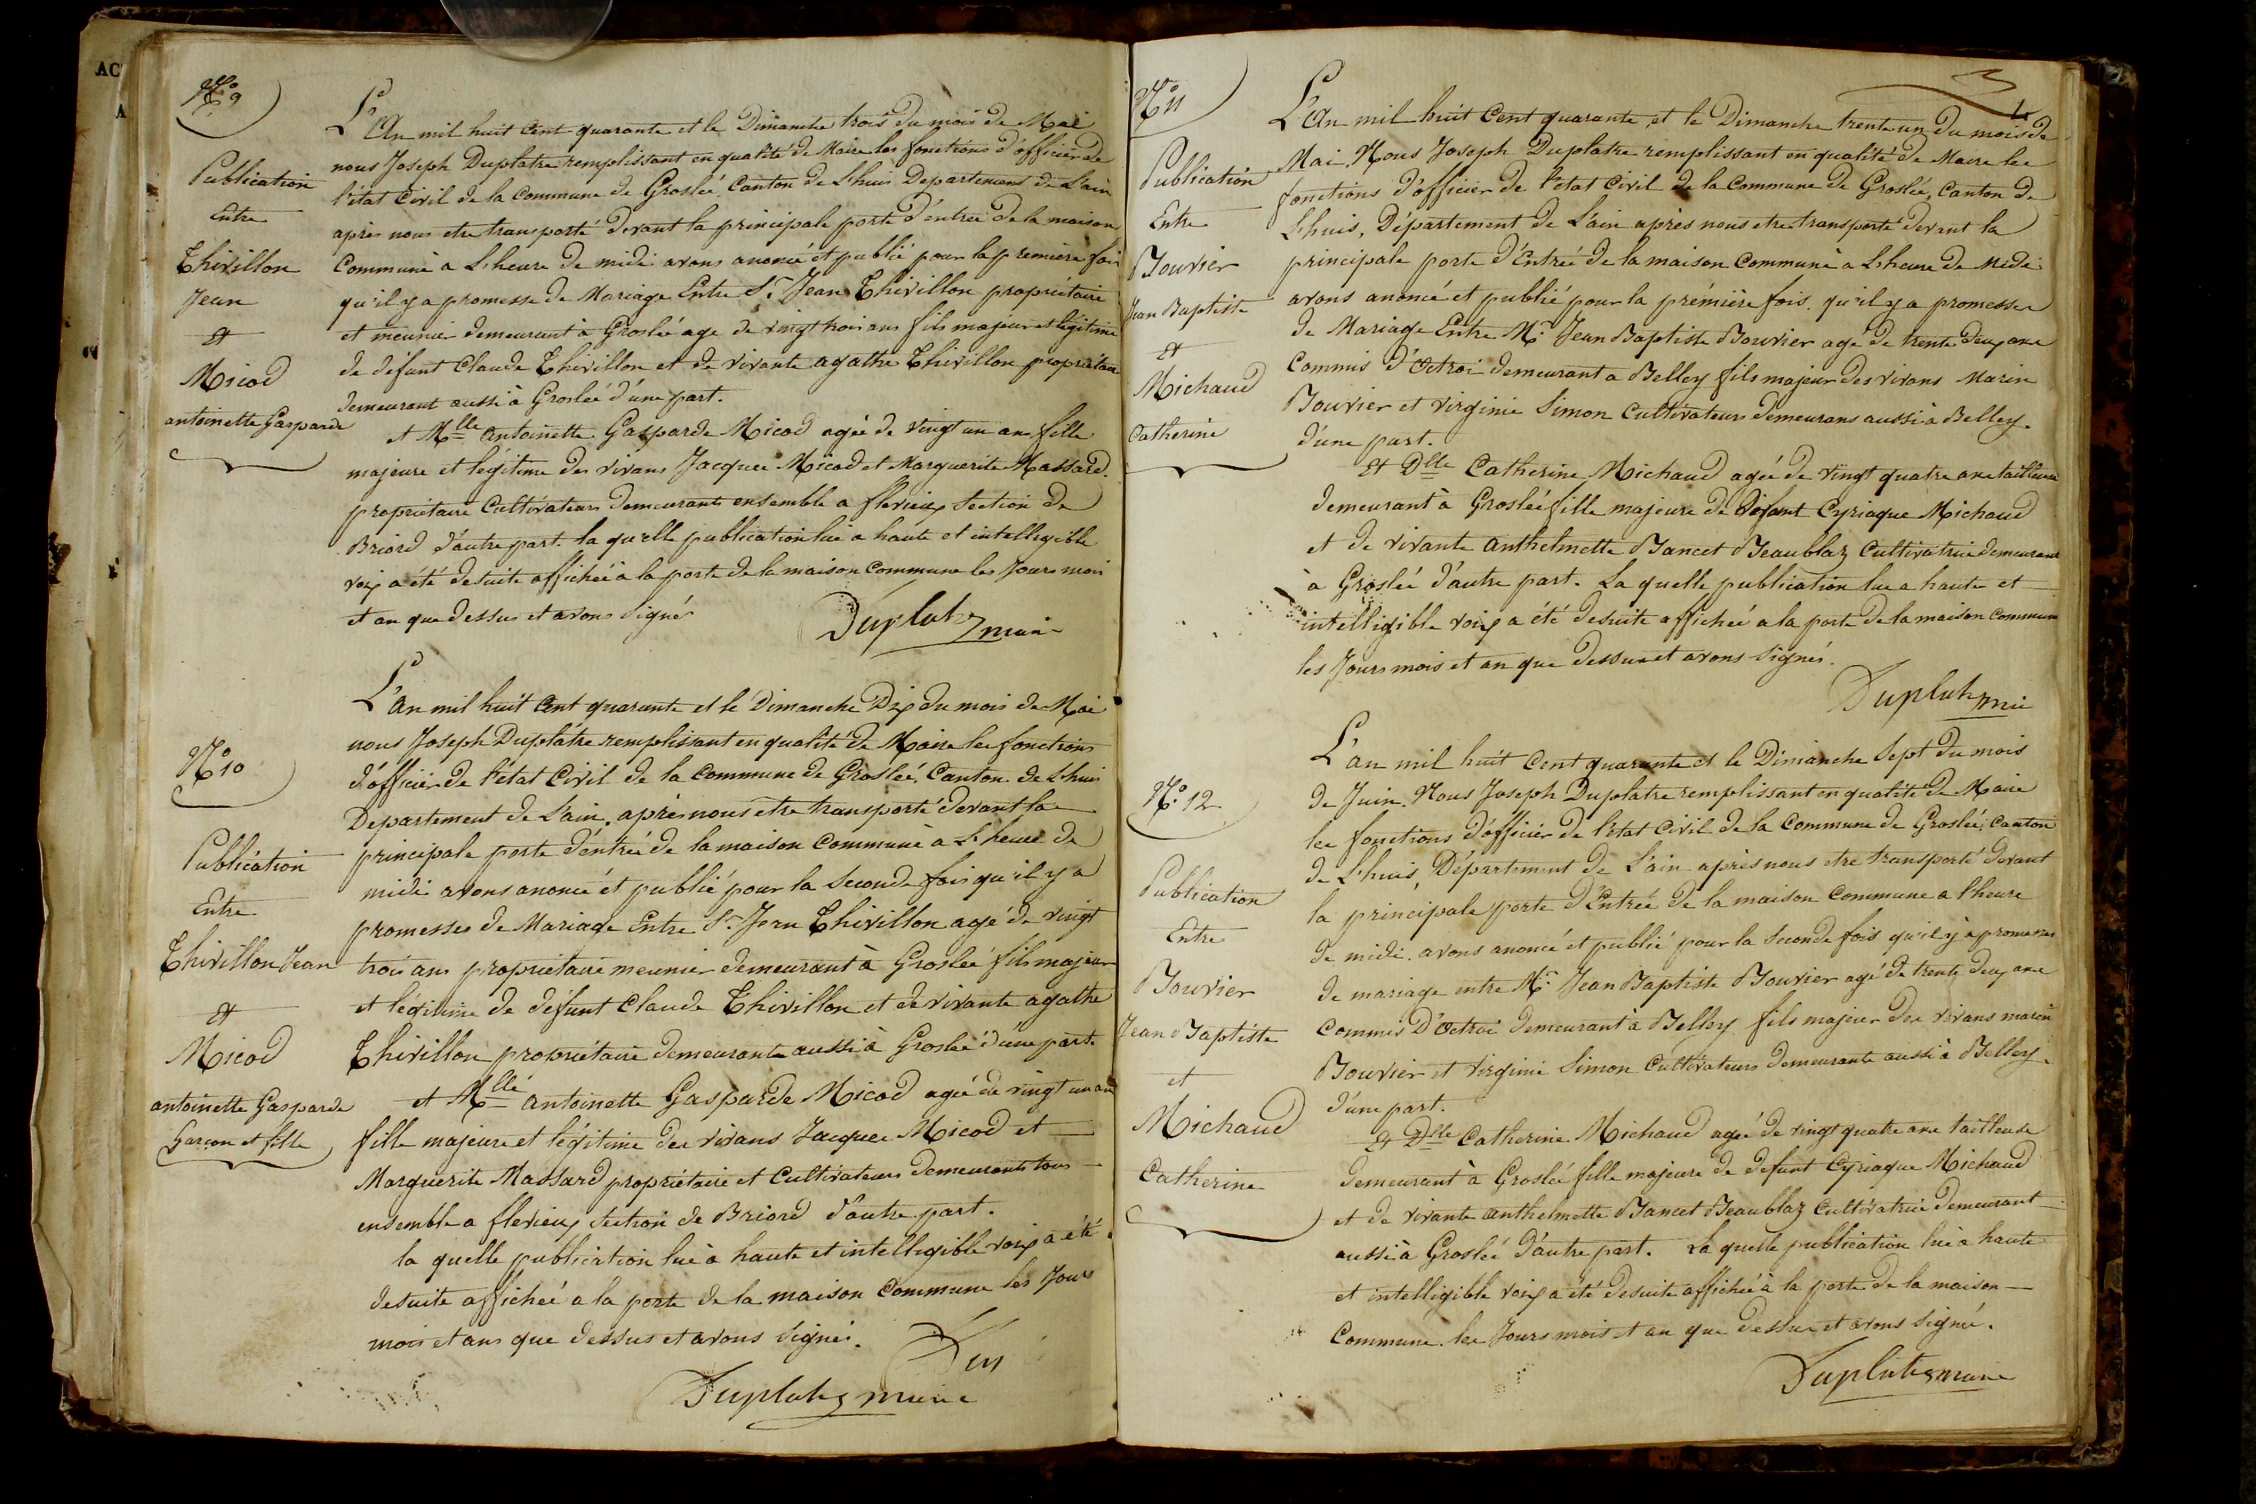 AC
A
N.º 9
Publication
Entre
Thivillon
Jean
et
Micod
antoinette Gasparde
L'An mil huit Cent quarante et le Dimanche trois du mois de Mai
nous Joseph Duplatre remplissant en qualité de Maire les fonctions d'officier de
l'état Civil de la Commune de Groslée Canton de Lhuis Departement de L'ain
après nous etre transporté devant la principale porte d'entrée de la maison
Commune a L'heure de midi avons anoncé et publié pour la premiere fois
qu'il y a promesse de Mariage Entre Sr. Jean Thivillon propriétaire
et meunier demeurant à Groslée age de vingt trois ans fils majeur et légitime
de défunt Claude Thivillon et de vivante agathe Thivillon propriétaire
demeurant aussi à Groslée d'une part.
et Mlle antoinette Gasparde Micod agée de vingt un ans fille
majeure et légitime des vivans Jacques Micod et Marguerite Massard.
propriétaire Cultivateurs demeurants ensemble a flevieux Section de
Briord d'autre part. la quelle publication lue a haute et intelligible
voix a été desuite affichée à la porte de la maison Commune les Jours mois
et an que dessus et avons signé
Duplatre maire
N.º 10
Publication
Entre
Thivillon Jean
et
Micod
antoinette Gasparde
Garçon et fille
L'an mil huit Cent quarante et le Dimanche Dix du mois de Mai
nous Joseph Duplatre remplissant en qualité de Maire les fonctions
d'officier de l'état Civil de la Commune de Groslée, Canton de Lhuis
Departement de L'ain, après nous etre transporté devant la
principale porte d'entrée de la maison Commune à L'heure de
midi avons anoncé et publié pour la Seconde fois qu'il y a
promesses de Mariage Entre Sr. Jean Thivillon agé de vingt
trois ans propriétaire meunier demeurant à Groslée fils majeur
et légitime de défunt Claude Thivillon et de vivante agathe
Thivillon propriétaire demeurante aussi à Groslée d'une part
et Mlle antoinette Gasparde Micod agée de vingt un an
fille majeure et légitime des vivans Jacques Micod et
Marguerite Massard propriétaire et Cultivateurs demeurants tous
ensemble a flevieux Section de Briord d'autre part.
la quelle publication lue à haute et intelligible voix a été
desuite affichée a la porte de la maison Commune les Jours
mois et ans que dessus et avons signé.
Duplatre maire
N.º 11
Publication
Entre
Bouvier
Jean Baptiste
et
Michaud
Catherine
L'An mil huit Cent quarante, et le Dimanche trente un du mois de
Mai, Nous Joseph Duplatre remplissant en qualité de Maire les
fonctions d'officier de l'état Civil de la Commune de Groslée, Canton de
Lhuis, Département de L'ain après nous etre transporté devant la
principale porte d'Entrée de la maison Commune a L'heure de Midi
avons anoncé et publié pour la première fois qu'il y a promesse
de Mariage Entre Mr. Jean Baptiste Bouvier agé de trente deux ans
Commis d'Octroi demeurant a Belley fils majeur des vivans Marin
Bouvier et virginie Simon Cultivateurs demeurans aussi à Belley.
d'une part.
Et Dlle Catherine Michaud agée de vingt quatre ans tailleuse
demeurant à Groslée fille majeure de Défunt Cyriaque Michaud
et de vivante anthelmette Bancet Beaublaz Cultivatrice demeurant
à Groslée d'autre part. La quelle publication lue a haute et
intelligible voix a été desuite affichée a la porte de la maison Commune
les Jours mois et an que dessus et avons Signé.
Duplatre
N.º 12
Publication
Entre
Bouvier
Jean Baptiste
et
Michaud
Catherine
L'an mil huit Cent quarante et le Dimanche Sept du mois
de Juin. Nous Joseph Duplatre remplissant en qualité de Maire
les fonctions d'officier de l'état Civil de la Commune de Groslée, Canton
de Lhuis, Département de L'ain après nous etre transporté devant
la principale porte d'Entrée de la maison Commune a l'heure
de midi. avons anoncé et publié pour la seconde fois qu'il y à promesses
de mariage entre Mr. Jean Baptiste Bouvier agé de trente deux ans
Commis D'Octroi demeurant à Belley fils majeur des vivans marin
Bouvier et Virginie Simon Cultivateurs demeurants aussi à Belley.
d'une part.
Et Dlle Catherine Michaud agée de vingt quatre ans tailleuse
demeurant à Groslée fille majeure de defunt Cyriaque Michaud
et de vivante anthelmette Bancet Beaublaz Cultivatrice demeurant
aussi à Groslée d'autre part. La quelle publication lue à haute
et intelligible voix a été desuite affichée à la porte de la maison
Commune. les Jours mois et an que dessus et avons signé.
Duplatre maire